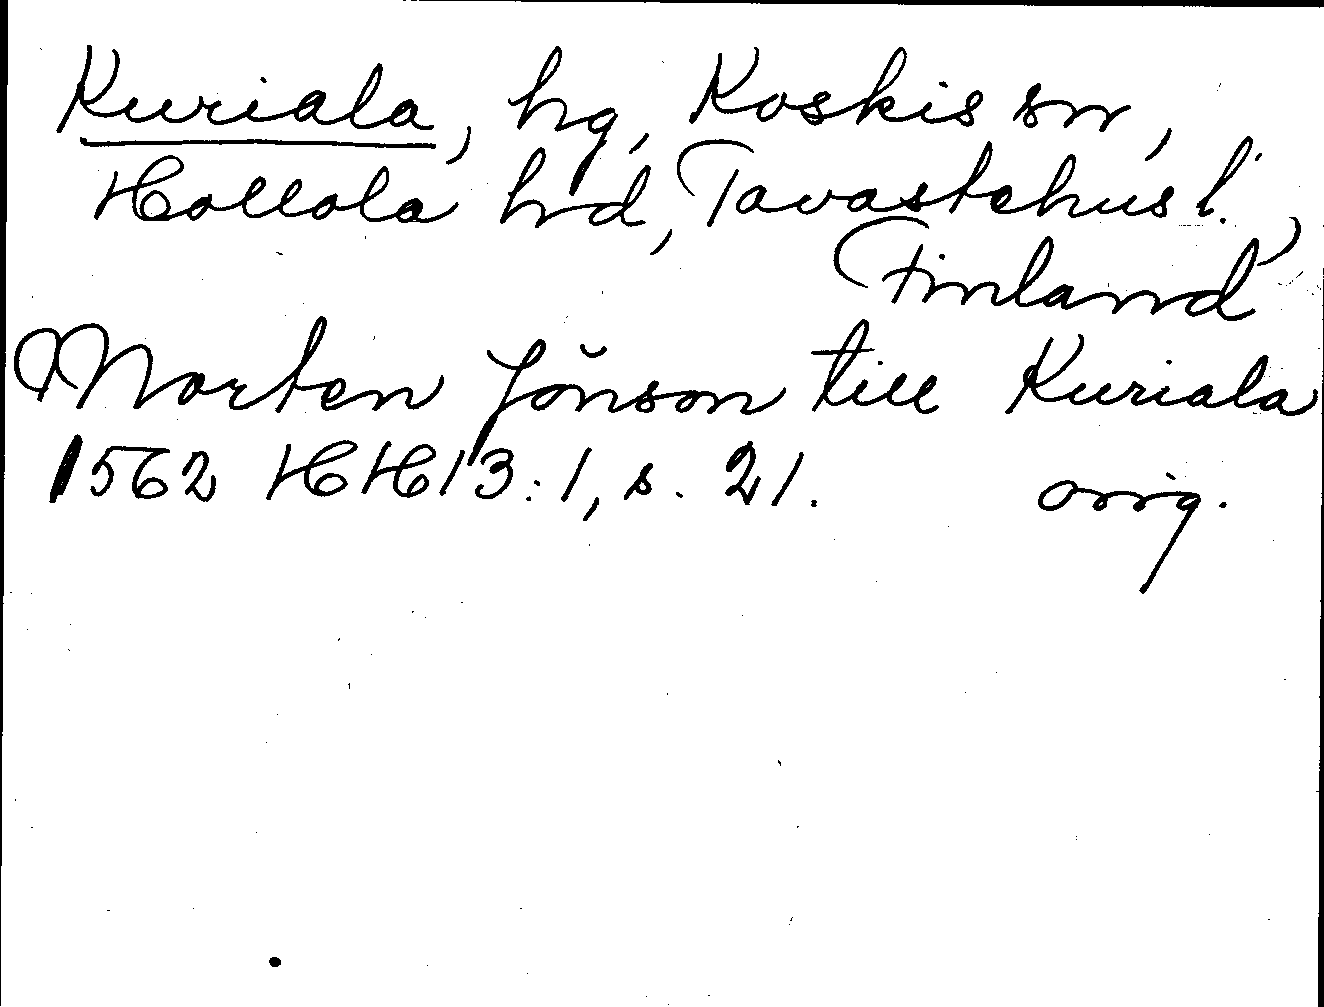 Kuriala, hg, Koskis sn,
Hollola hrd, Tavastehus l.,
Finland
Morten Jönson till Kuriala
1562 HH 13:1, s. 21. orig.